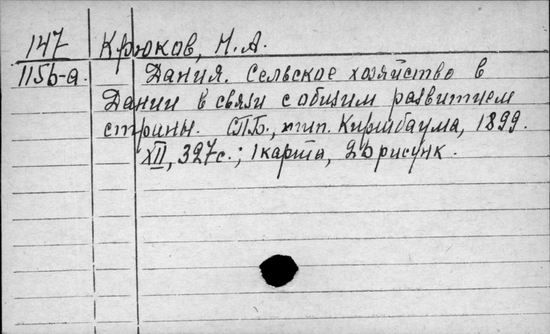 147 Крюков, Н. А.
115b-a. Дания. Сельское хозяйство в
Дании в связи с общим развитием
страны. СПБ., тип. Киршбаума, 1899.
XII, 327с.; 1 карта, рисунк.